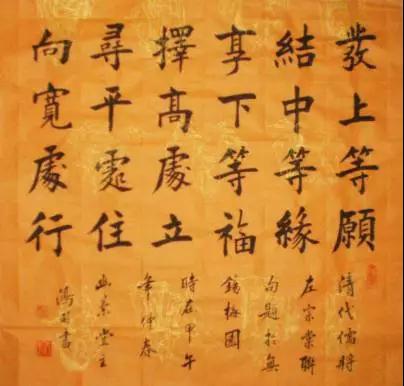 發上等願
結中等緣
享下等福
擇高處立
尋平處住
向寬處行
清代儒將
左宗棠聯
句題於無
錫梅園
時在甲午
年仲春
堂主
書